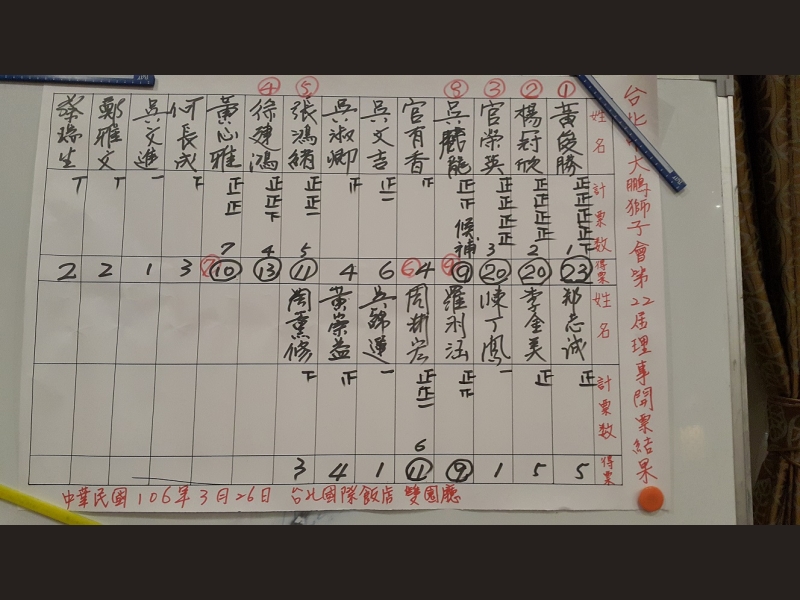 台北大鵬獅子會第22屆理事開票結果
姓名 計票數 得票
① 黃俊勝 正正正正下 1 23
② 楊冠欣 正正正正 2 20
③ 官榮英 正正正正 3 20
⑧ 吳龍 正正 候補 9
官有香 正 4
吳文吉 正一 6
吳淑卿 正 4
⑤ 張鴻 正正一 5 11
④ 徐建鴻 正正下 4 13
黃心雅 正正 7 ⑦ 10
何長成 下 3
吳文進 一 1
鄭雅文 丅 2
蔡瑞生 丅 2
姓名 計票數 得票
鄭志誠 正 5
李金美 正 5
陳丁鳳 一 1
羅永涵 正正 9
周彬宏 正正一 6 ⑥ 11
吳錦蓮 一 1
黃崇益 正 4
周熏修 下 3
中華民國106年3月26日 台北國際飯店 雙園廳